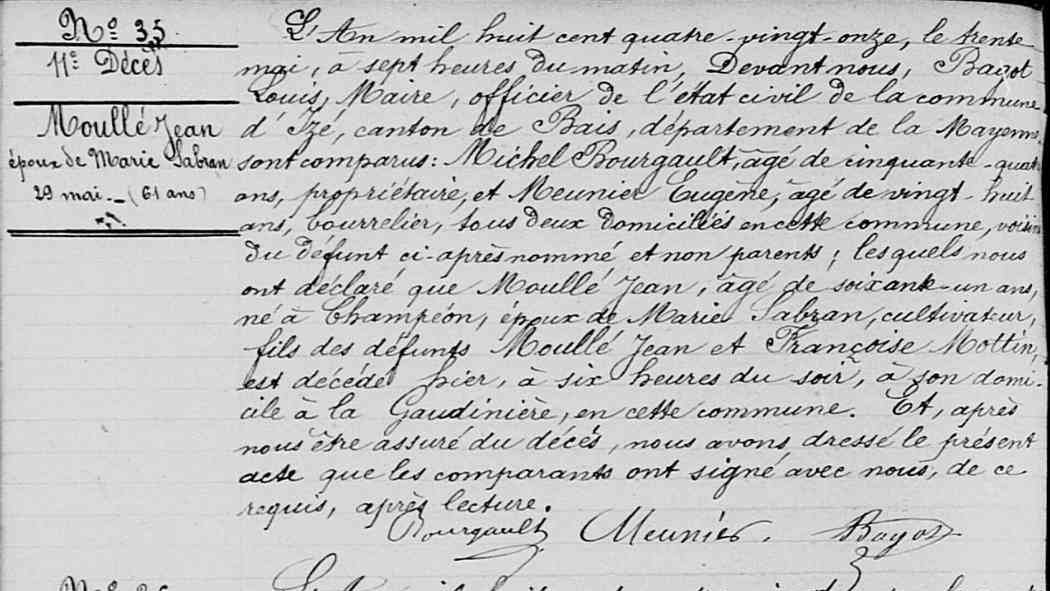 N° 35
11e Décès
Moullé Jean
époux de Marie Sabran
29 mai _ (61 ans)
L'An mil huit cent quatre-vingt-onze, le trente
mai, à sept heures du matin, Devant nous, Bagot
Louis, Maire, officier de l'état civil de la commune
d'Izé, canton de Bais, département de la Mayenne,
sont comparus: Michel Bourgault, âgé de cinquante-quatre
ans, propriétaire, et Meunier Eugène, âgé de vingt-huit
ans, bourrelier, tous deux domiciliés en cette commune, voisins
du défunt ci-après nommé et non parents; lesquels nous
ont déclaré que Moullé Jean, âgé de soixante-un ans,
né à Champéon, époux de Marie Sabran, cultivateur,
fils des défunts Moullé Jean et Françoise Mottin,
est décédé hier, à six heures du soir, à son domi-
cile à la Gaudinière, en cette commune. Et, après
nous être assuré du décès, nous avons dressé le présent
acte que les comparants ont signé avec nous, de ce
requis, après lecture.
Bourgault Meunier. Bagot